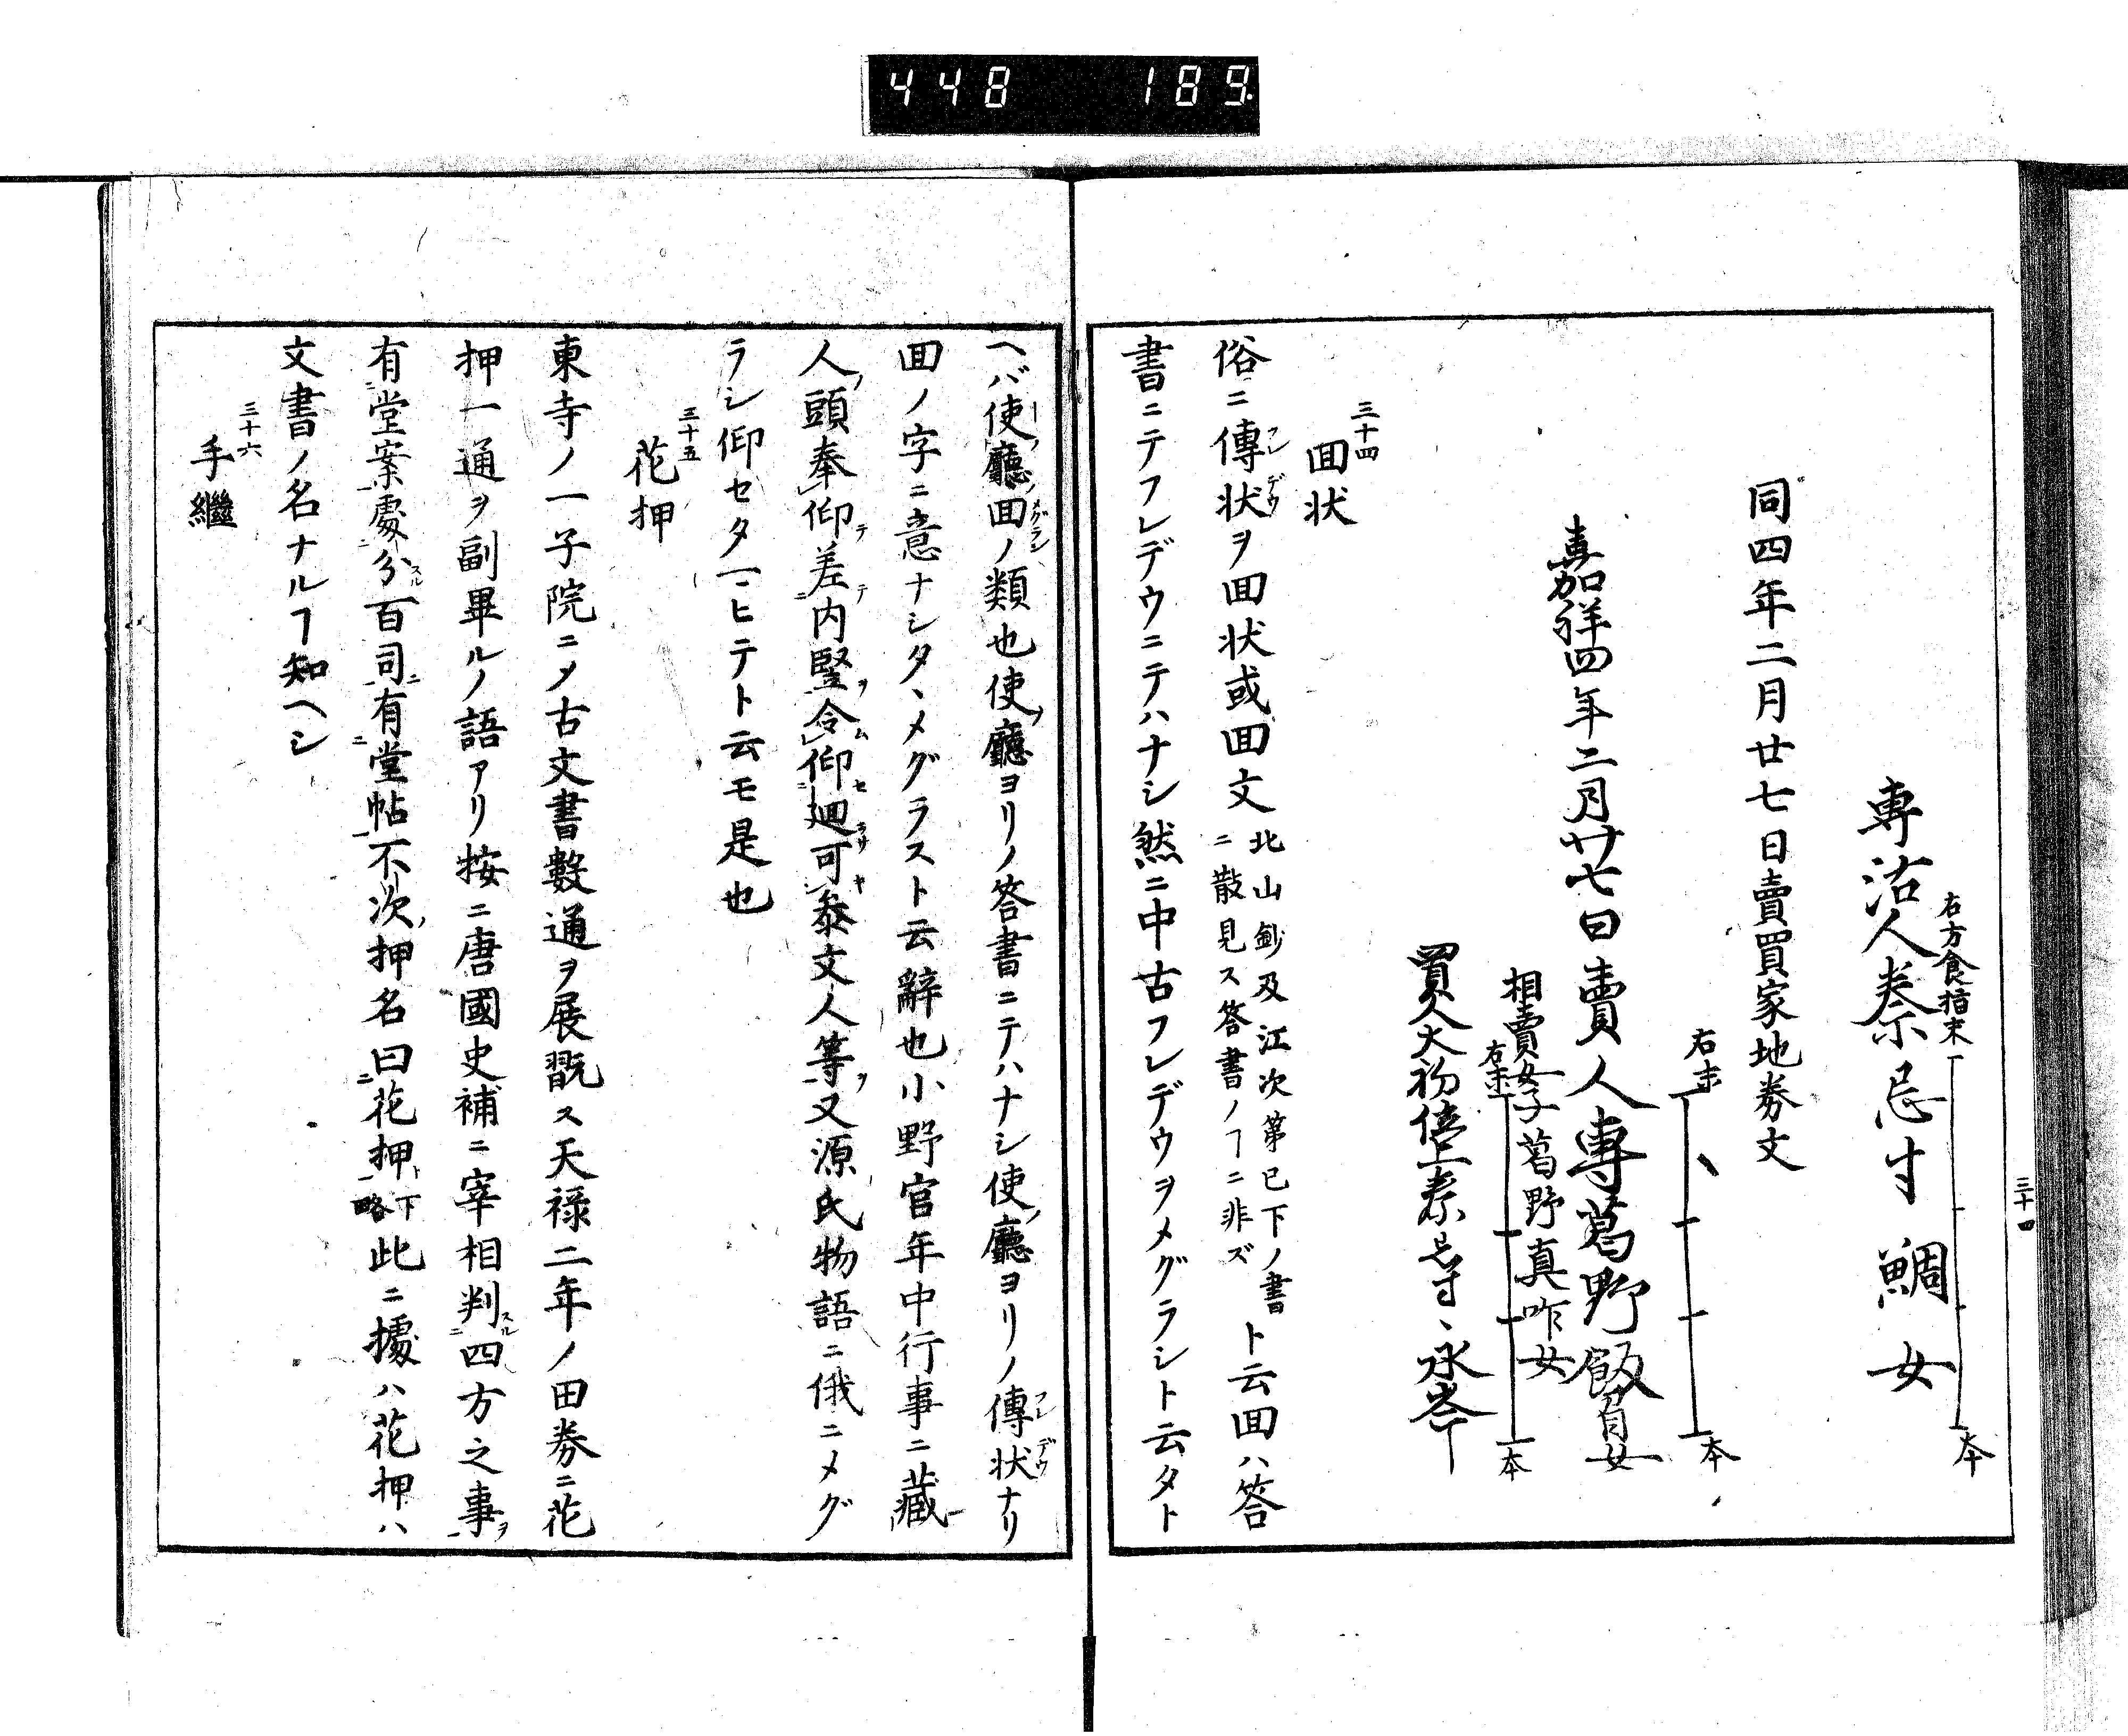 448 189
三十四
専沽人秦忌寸鯛女
右方食指末
本
同四年二月廿七日賣買家地券文
右末
本
嘉祥四年二月廿七日賣人專葛野飯刀自女
相賣女子葛野真咋女
右末
本
買人大初位上秦忌寸永岑
三十四
回状
俗ニ傳状ヲ回状或回文北山鈔及江次第已下ノ書ニ散見ス答書ノヿニ非ズト云回ハ答
フレデウ
書ニテフレデウニテハナシ然ニ中古フレデウヲメグラシト云タト
ヘバ使廳回ノ類也使廳ヨリノ答書ニテハナシ使廳ヨリノ傳状ナリ
回ノ字ニ意ナシタヽメグラスト云辭也小野官年中行事ニ藏
人頭奉仰差内竪令仰廻可參文人等又源氏物語ニ俄ニメグ
ラシ仰セタマヒテト云モ是也
三十五
花押
東寺ノ一子院ニメ古文書數通ヲ展翫ス天禄二年ノ田券ニ花
押一通ヲ副畢ルノ語アリ按ニ唐國史補ニ宰相判四方之事
有堂案處分百司有堂帖不次押名曰花押下略此ニ據ハ花押ハ
文書ノ名ナルヿ知ヘシ
三十六
手繼